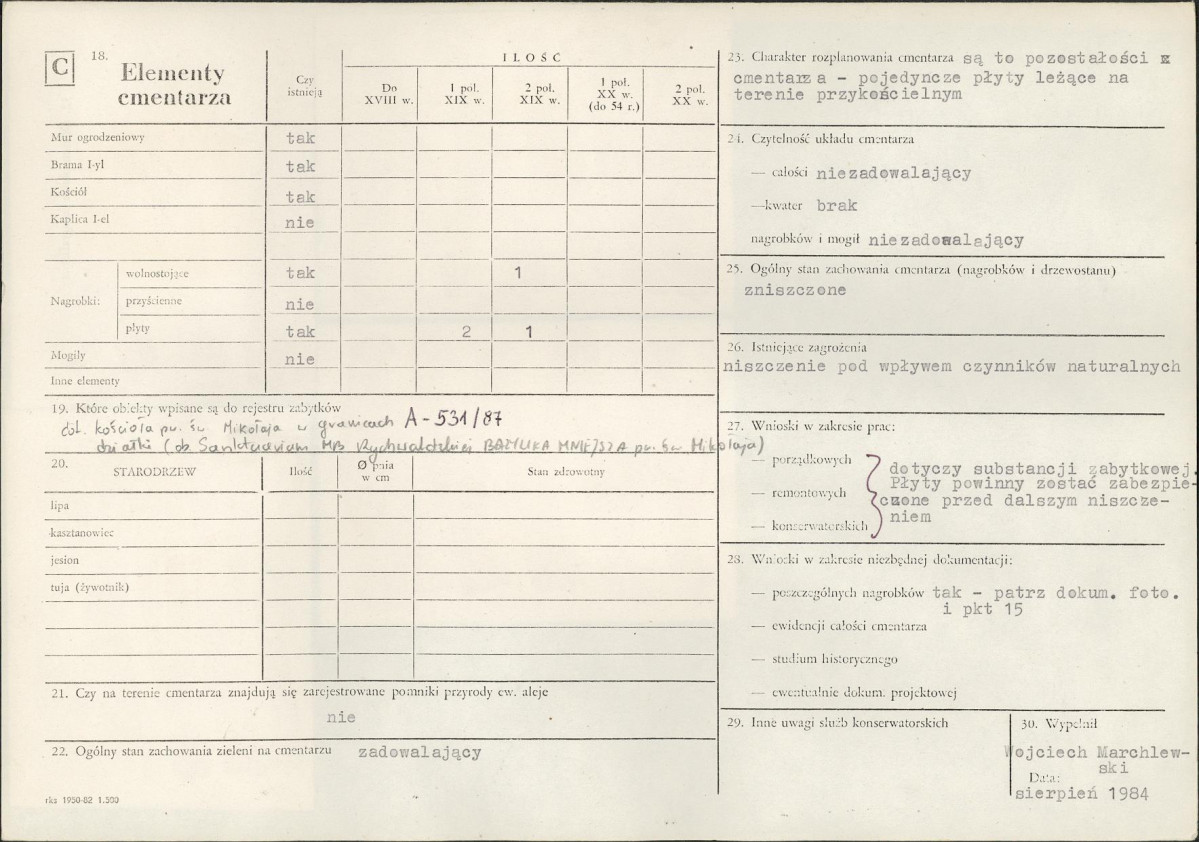 C
18. Elementy
cmentarza
Czy
istnieją
ILOŚĆ
Do
XVIII w.
1 poł.
XIX w.
2 poł.
XIX w.
1 poł.
XX w.
(do 54 r.)
2 poł.
XX w.
Mur ogrodzeniowy tak
Brama I-yl tak
Kościół tak
Kaplica I-el nie
Nagrobki:
wolnostojące tak 1
przyścienne nie
płyty tak 2 1
Mogiły nie
Inne elementy
19. Które obiekty wpisane są do rejestru zabytków
kościoła pw. św. Mikołaja w granicach A-531/87
działki (ob. Sanktuarium MB Rychwałdzkiej BAZYLIKA MNIEJSZA pw. św. Mikołaja)
20. STARODRZEW Ilość Ø pnia
w cm Stan zdrowotny
lipa
kasztanowiec
jesion
tuja (żywotnik)
21. Czy na terenie cmentarza znajdują się zarejestrowane pomniki przyrody ew. aleje
nie
22. Ogólny stan zachowania zieleni na cmentarzu zadowalający
rks 1950-82 1.500
23. Charakter rozplanowania cmentarza są to pozostałości z
cmentarza - pojedyncze płyty leżące na
terenie przykościelnym
24. Czytelność układu cmentarza
— całości niezadowalający
—kwater brak
nagrobków i mogił niezadowalający
25. Ogólny stan zachowania cmentarza (nagrobków i drzewostanu)
zniszczone
26. Istniejące zagrożenia
niszczenie pod wpływem czynników naturalnych
27. Wnioski w zakresie prac:
— porządkowych
— remontowych
— konserwatorskich
dotyczy substancji zabytkowej.
Płyty powinny zostać zabezpie-
czone przed dalszym niszcze-
niem
28. Wnioski w zakresie niezbędnej dokumentacji:
— poszczególnych nagrobków tak - patrz dokum. foto.
i pkt 15
— ewidencji całości cmentarza
— studium historycznego
— ewentualnie dokum. projektowej
29. Inne uwagi służb konserwatorskich
30. Wypełnił
Wojciech Marchlew-
ski
Data:
sierpień 1984